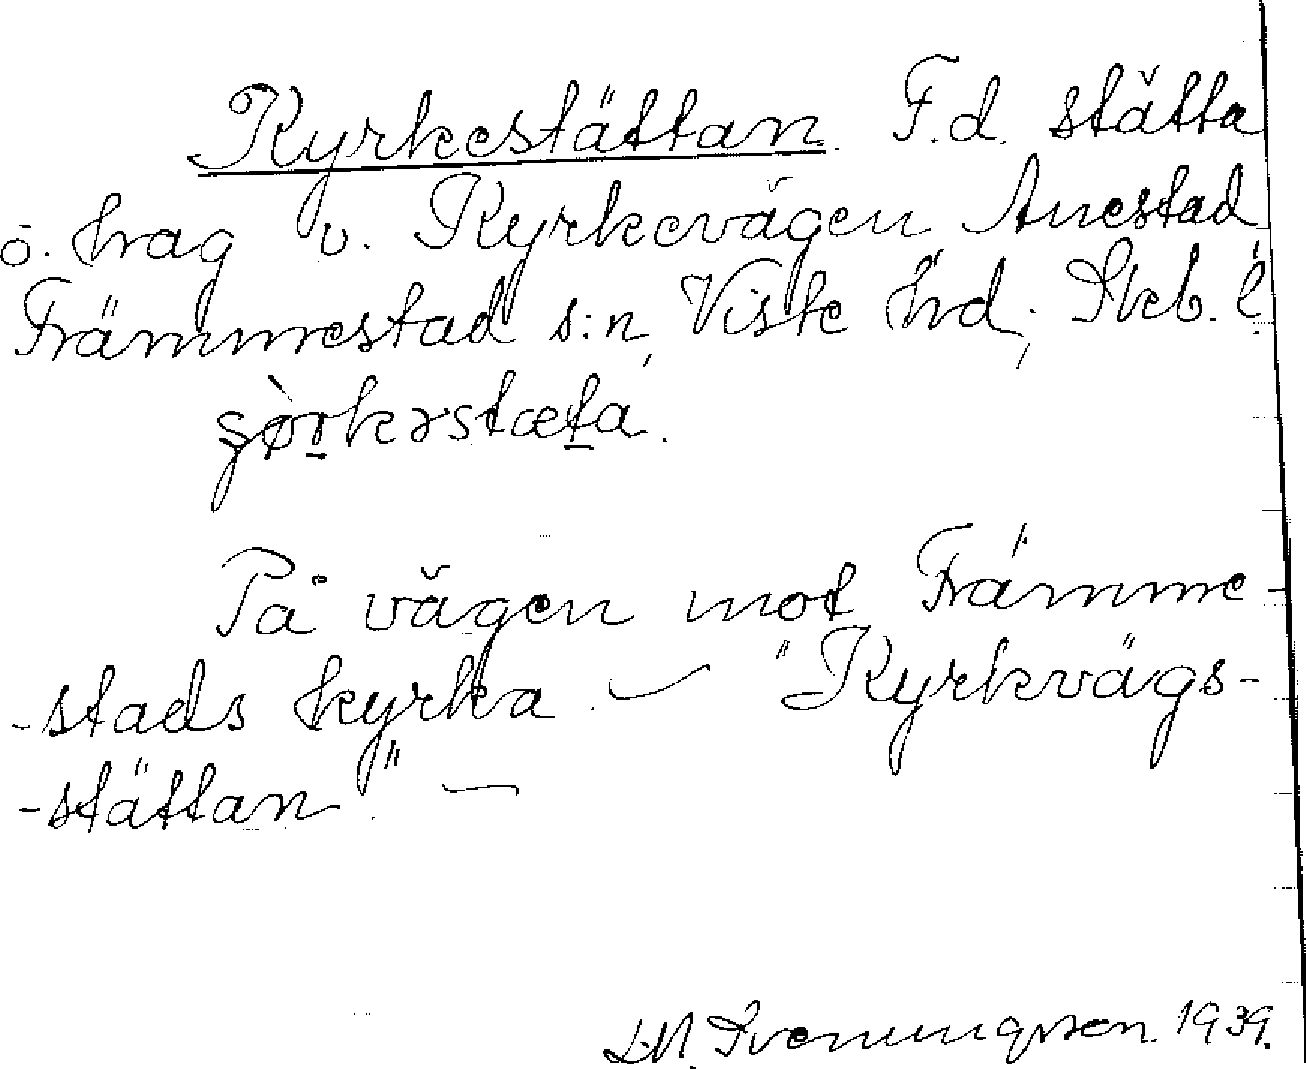 Kyrkestättan. F.d. stätta
ö. hag v. Kyrkevägen Anestad
Främmestad s:n, Viste hrd; Skb. l.
ʂø̀rkərstæta.
På vägen mot Främme-
-stads kyrka. — "Kyrkvägs-
-stättan". —
Sveningsson 1939.